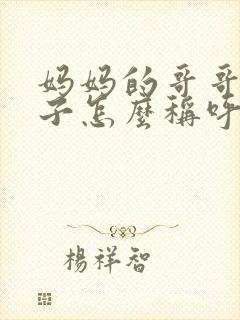 妈妈的哥哥
子怎麼稱呼
楊祥智